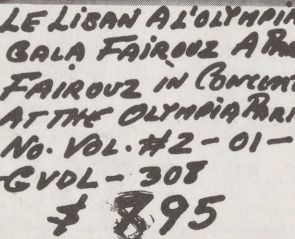 LE LIBAN A L'OLYMPIA
GALA FAIROUZ A PAR
FAIROUZ IN CONCERT
AT THE OLYMPIA PARI
No. VOL. #2-01-
GVDL-308
$ 8.95